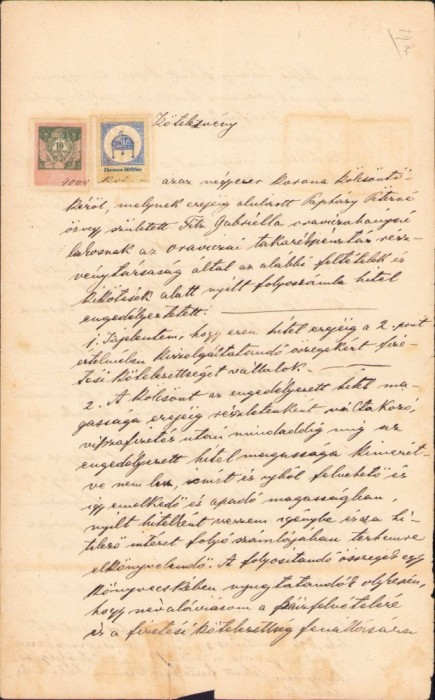 Kötelezvény
10
4000 Kor
azaz négyezer korona kölcsöntő-
kéről, melynek erejéig alulírott Papházy Péterné
özvegy született Fitz Gabriella oraviczabányai
lakosnak az oraviczai takarékpénztár rész-
vénytársaság által az alábbi feltételek és
kikötések alatt nyílt folyószámla hitel
engedélyeztetett.
1. Kijelentem, hogy ezen hitel erejéig a 2. pont
értelmében kiszolgáltatandó összegekért fize-
tési kötelezettséget vállalok.
2. A kölcsönt az engedélyezett hitel ma-
gassága erejéig részletenként váltakozó,
visszafizetés után mindaddig míg az
engedélyezett hitel magassága kimerít-
ve nem lesz, ismét és újból felvehető és
így emelkedő és apadó magasságban,
nyílt hitelként veszem igénybe és a hi-
telező intézet folyó számlájában terhemre
elkönyvelendő. A folyósítandó összeget egy
könyvecskében nyugtatandó olyképen,
hogy névaláírásom a pénzfelvételére
és a fizetési kötelezettség fenállására